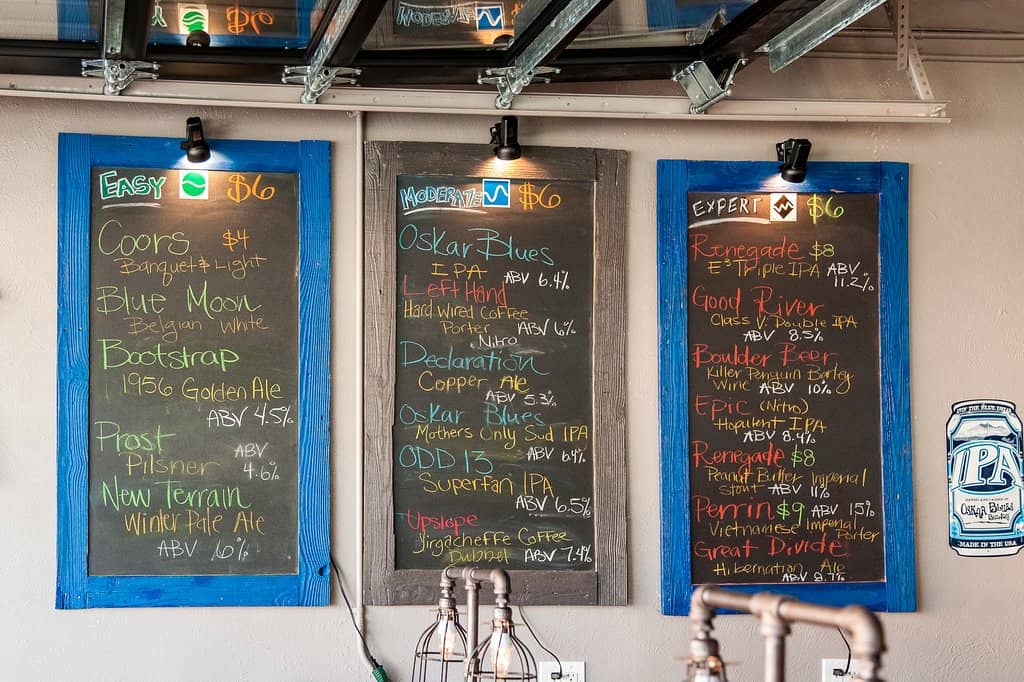 EASY $6
Coors $4
Banquet & Light
Blue Moon
Belgian White
Bootstrap
1956 Golden Ale
ABV 4.5%
Prost ABV
Pilsner 4.6%
New Terrain
Winter Pale Ale
ABV 6%
MODERATE $6
Oskar Blues
IPA ABV 6.4%
Left Hand
Hard Wired Coffee
Porter ABV 6%
Nitro
Declaration
Copper Ale
ABV 5.3%
Oskar Blues
Mothers Only Sud IPA
ABV 6.4%
ODD 13
Superfan IPA
ABV 6.5%
Upslope
Yirgacheffe Coffee
Dubbel ABV 7.4%
EXPERT $6
Renegade $8
E³ Triple IPA ABV
11.2%
Good River
Class V: Double IPA
ABV 8.5%
Boulder Beer
Killer Penguin Barley
Wine ABV 10%
Epic (Nitro)
Hopulent IPA
ABV 8.4%
Renegade $8
Peanut Butter Imperial
Stout ABV 11%
Perrin $9 ABV 15%
Vietnamese Imperial
Porter
Great Divide
Hibernation Ale
ABV 8.7%
IPA
OSKAR BLUES
MADE IN THE USA